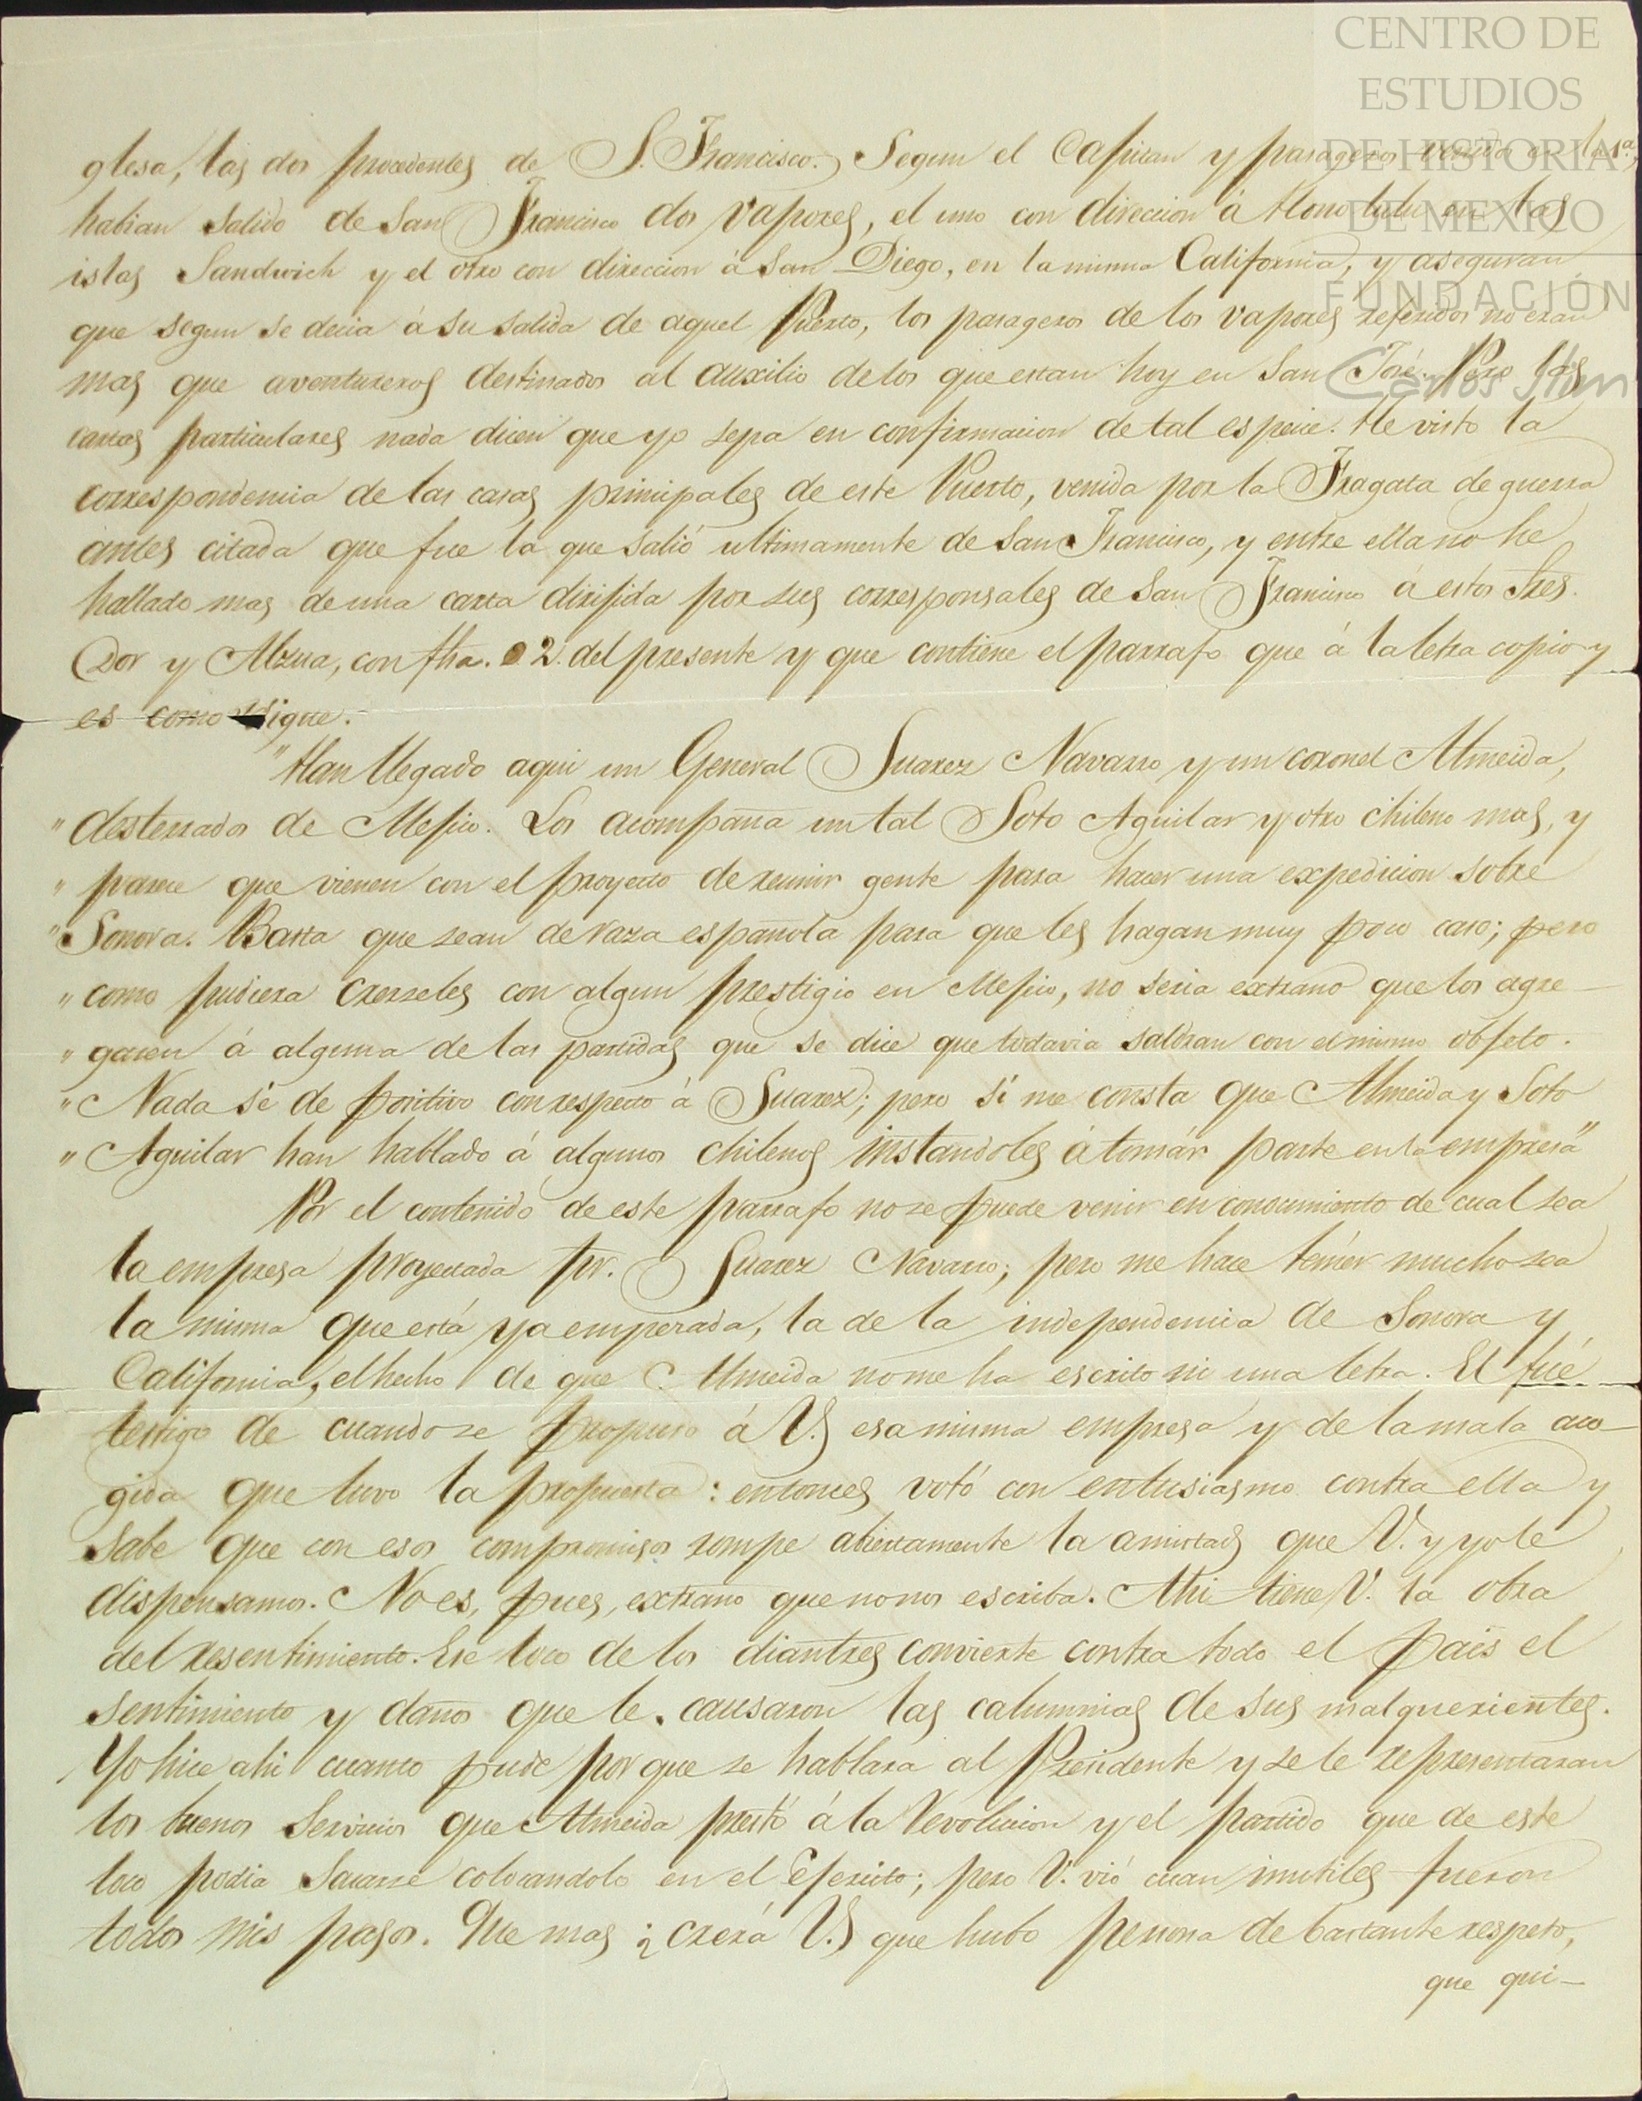 CENTRO DE
ESTUDIOS
DE HISTORIA
DE MEXICO
FUNDACIÓN
Carlos Slim
glesa, las dos procedentes de S. Francisco. Segun el Capitan y pasageros venidos en la 1ª,
habian salido de San Francisco dos vapores, el uno con direccion á Honolulu en las
islas Sandwich y el otro con direccion á San Diego, en la misma California, y aseguran
que segun se decia á su salida de aquel Puerto, los pasageros de los vapores referidos no eran
mas que aventureros destinados al auxilio de los que estan hoy en San José. Pero las
cartas particulares nada dicen que yo sepa en confirmacion de tal especie. He visto la
correspondencia de las casas principales de este Puerto, venida por la Fragata de guerra
antes citada que fue la que salió ultimamente de San Francisco, y entre ella no he
hallado mas de una carta dirijida por sus corresponsales de San Francisco á estos Sres.
Dor y Alzua, con fha. 2. del presente y que contiene el parrafo que á la letra copio y
es como sigue.
"Han llegado aqui un General Suarez Navarro y un coronel Almeida,
" desterrados de Mejico. Los acompaña un tal Soto Aguilar y otro chileno mas, y
" parece que vienen con el proyecto de reunir gente para hacer una expedicion sobre
" Sonora. Basta que sean de raza española para que les hagan muy poco caso; pero
" como pudiera creerseles con algun prestigio en Mejico, no seria extraño que los agre-
" gasen á alguna de las partidas que se dice que todavia saldran con el mismo objeto.
" Nada sé de positivo con respecto á Suarez; pero si me consta que Almeida y Soto
" Aguilar han hablado á algunos chilenos instandoles á tomár parte en la empresa"
Por el contenido de este parrafo no se puede venir en conocimiento de cual sea
la empresa proyectada pr. Suarez Navarro; pero me hace temér mucho sea
la misma que está ya empezada, la de la independencia de Sonora y
California, el hecho de que Almeida no me ha escrito ni una letra. El fué
testigo de cuando se propuso á V. esa misma empresa y de la mala aco-
gida que tuvo la propuesta: entonces votó con entusiasmo contra ella y
sabe que con esos compromisos rompe abiertamente la amistad que V. y yo le
dispensamos. No es, pues, extraño que no nos escriba. Ahi tiene V. la obra
del resentimiento. Ese loco de los diantres convierte contra todo el pais el
sentimiento y daños que le causaron las calumnias de sus malquerientes.
Yo hice ahi cuanto pude por que se hablara al Presidente y se le representaran
los buenos servicios que Almeida prestó á la Revolucion y el partido que de este
loco podia sacarse colocandolo en el Ejercito; pero V. vió cuan inutiles fueron
todos mis pasos. Que mas ¿creerá V. que hubo persona de bastante respeto,
que qui-